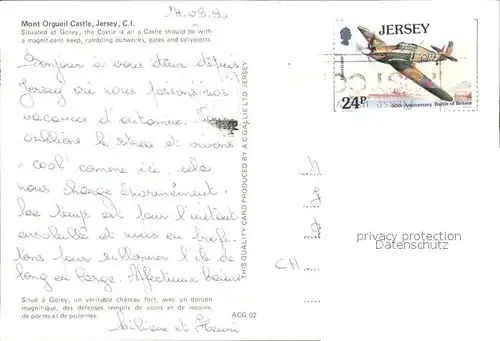 17.09.90
Mont Orgueil Castle, Jersey, C.I.
Situated at Gorey, the Castle is all a Castle should be with
a magnificent keep, rambling outworks, gates and sallyports.
Bonjour à vous deux depuis
Jersey où nous passons nos
vacances d'automne. Nous
oublions le stress et vivons
"cool" comme ici, cela
nous change énormément.
Le temps est pour l'instant
ensoleillé et nous en profi-
tons pour sillonner l'île de
long en large. Affectueux baisers
Situé à Gorey, un véritable château fort, avec un donjon
magnifique, des défenses remplis de coins et de recoins,
de portes et de poternes.
ACG 02
Liliane et Henri
THIS QUALITY CARD PRODUCED BY A.C. GALLIE LTD. JERSEY
JERSEY
24P
50th Anniversary Battle of Britain
CH
privacy protection
Datenschutz